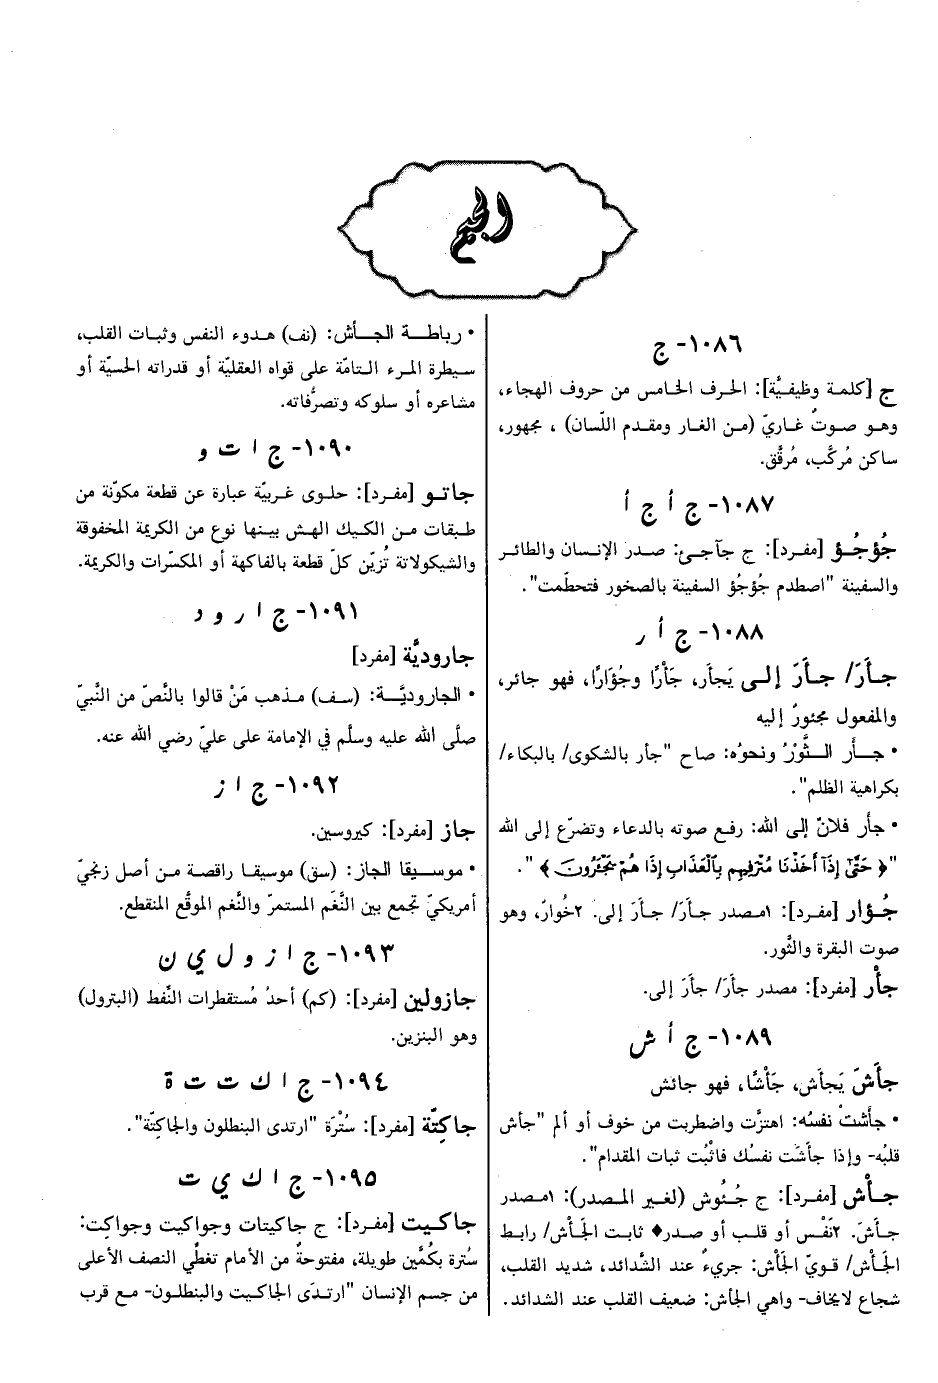 الجيم
١٠٨٦- ج
ج [كلمة وظيفيَّة]: الحرف الخامس من حروف الهجاء،
وهو صوتٌ غاريّ (من الغار ومقدم اللّسان) ، مجهور،
ساكن مُركَّب، مُرقَّق.
١٠٨٧- ج أ ج أ
جُؤجُؤ [مفرد]: ج جآجئ: صدر الإنسان والطائر
والسفينة "اصطدم جُؤجُؤ السفينة بالصخور فتحطّمت".
١٠٨٨- ج أ ر
جـأَرَ/ جـأَرَ إلـى يَجأَر، جَأْرًا وجُؤَارًا، فهو جائر،
والمفعول مجئورٌ إليه
• جـأَر الـثَّوْرُ ونحوُه: صاح "جأر بالشكوى/ بالبكاء/
بكراهية الظلم".
• جأر فلانٌ إلى الله: رفع صوته بالدعاء وتضرّع إلى الله
"﴿ حَتَّىٰٓ إِذَآ أَخَذْنَا مُتْرَفِيهِم بِٱلْعَذَابِ إِذَا هُمْ يَجْـَٔرُونَ ﴾ ".
جُؤار [مفرد]: ١مصدر جأَرَ/ جأَرَ إلى. ٢خُوارٌ، وهو
صوت البقرة والثَّور.
جأْر [مفرد]: مصدر جأَرَ/ جأَرَ إلى.
١٠٨٩- ج أ ش
جأَشَ يَجأَش، جَأْشًا، فهو جائش
• جأَشتْ نفسُه: اهتزَّت واضطربت من خوف أو ألم "جأش
قلبُه- وإذا جأَشَت نفسُك فاثْبُت ثبات المقدام".
جـأْش [مفرد]: ج جُئُوش (لغير المصدر): ١مصدر
جأَشَ. ٢نَفْس أو قلب أو صدر♦ ثابت الجأْش/ رابط
الجأْش/ قويّ الجأْش: جريءٌ عند الشَّدائد، شديد القلب،
شجاع لايخاف- واهي الجأش: ضعيف القلب عند الشدائد.
• رباطـة الجـأش: (نف) هـدوء النفس وثبات القلب،
سيطرة المرء التامّة على قواه العقليّة أو قدراته الحسيّة أو
مشاعره أو سلوكه وتصرُّفاته.
١٠٩٠- ج ا ت و
جاتـو [مفرد]: حلوى غربيّة عبارة عن قطعة مكوّنة من
طبقات من الكيك الهش بينها نوع من الكريمة المخفوقة
والشيكولاتة تُزيّن كلّ قطعة بالفاكهة أو المكسّرات والكريمة.
١٠٩١- ج ا ر و د
جاروديَّة [مفرد]
• الجاروديَّـة: (سف) مذهب مَنْ قالوا بالنَّصّ من النَّبيّ
صلَّى الله عليه وسلَّم في الإمامة على عليّ رضي الله عنه.
١٠٩٢- ج ا ز
جاز [مفرد]: كيروسين.
• موسـيقا الجاز: (سق) موسيقا راقصة من أصل زنجيّ
أمريكيّ تجمع بين النَّغَم المستمرّ والنَّغم الموقَّع المنقطع.
١٠٩٣- ج ا ز و ل ي ن
جازولين [مفرد]: (كم) أحدُ مُستقطرات النَّفط (البترول)
وهو البنزين.
١٠٩٤- ج ا ك ت ت ة
جاكتّة [مفرد]: سُتْرَة "ارتدى البنطلون والجاكِتّة".
١٠٩٥- ج ا ك ي ت
جاكيت [مفرد]: ج جاكيتات وجواكيت وجواكِت:
سُترة بكُمَّين طويلة، مفتوحةٌ من الأمام تغطِّي النصف الأعلى
من جسم الإنسان "ارتـدَى الجاكيت والبنطلون- مع قرب